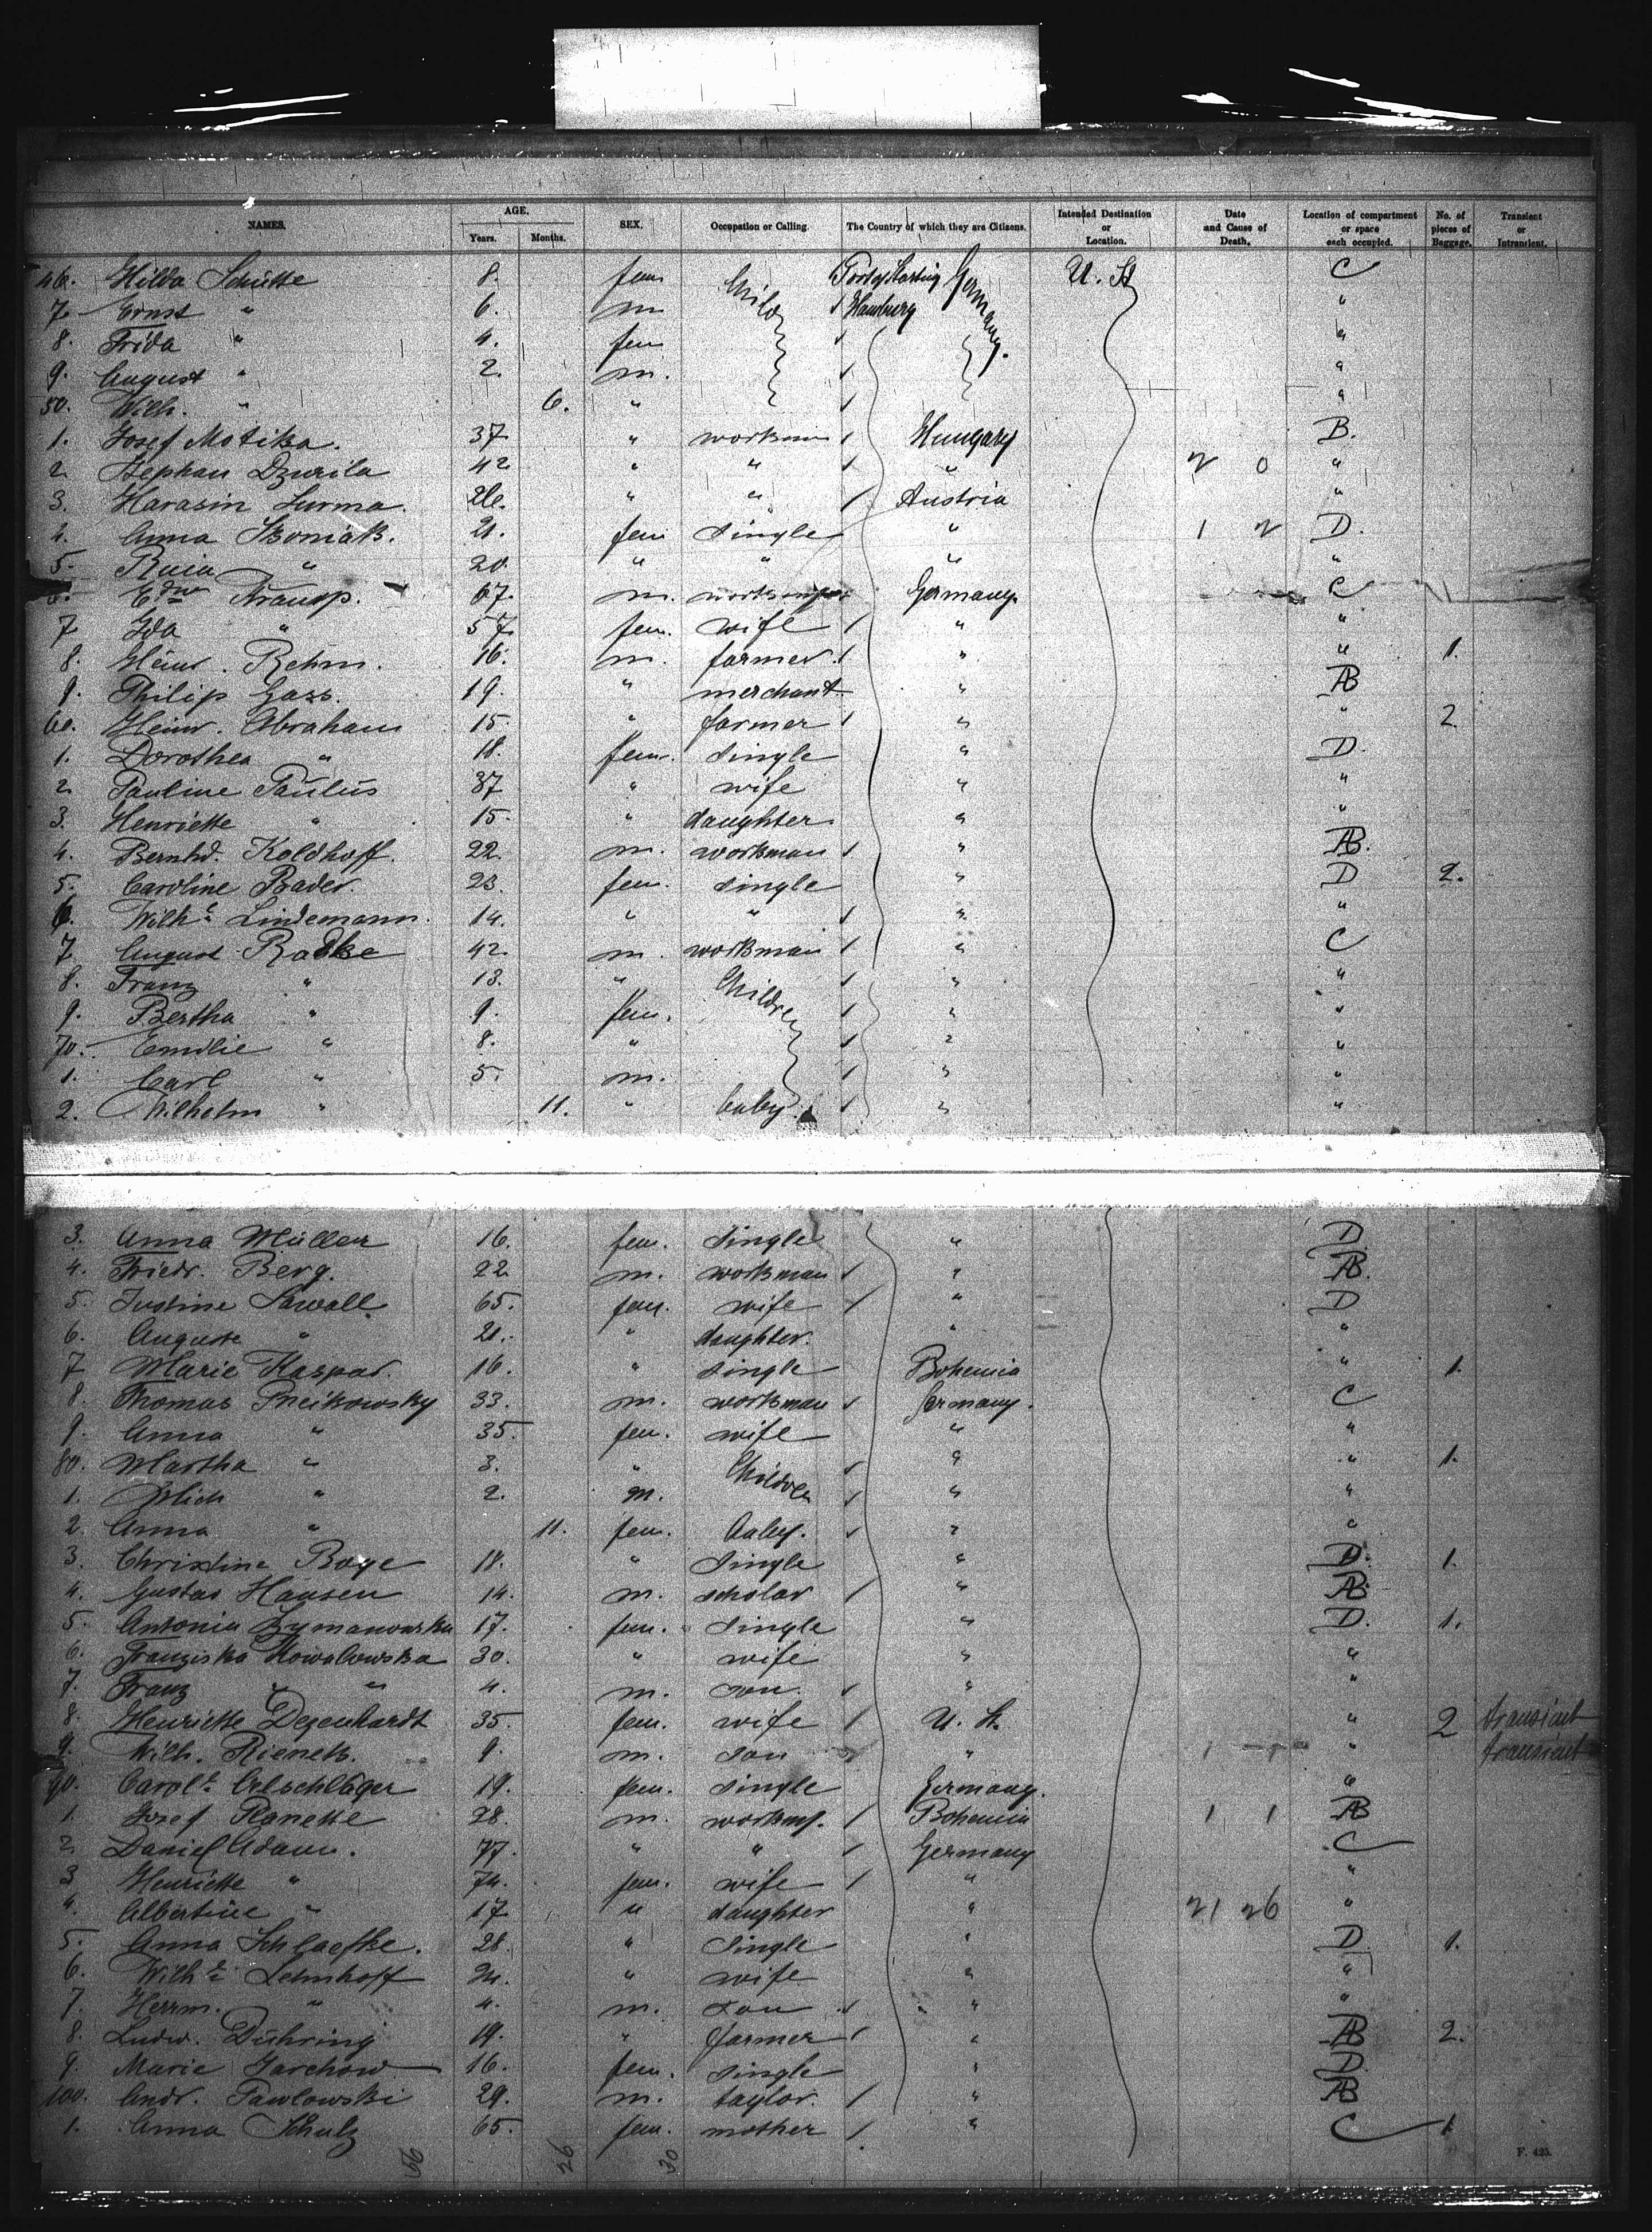 NAMES. AGE. Years. Months. SEX. Occupation or Calling. The Country of which they are Citizens. Intended Destination or Location. Date and Cause of Death. Location of compartment or space each occupied. No. of pieces of Baggage. Transient or Intransient.
46. Hilda Schütte 8. fem Child Port of Starting Germany. U. St C
7. Ernst " 6. m Hamburg "
8. Frida " 4. fem "
9. August " 2. m. "
50. Wilh. " 6. " "
1. Josef Motika. 37 " workman Hungary B.
2 Stephan Dzurila 42 " " " 2 0 "
3. Harasin Surma. 26. " " Austria "
4. Anna 21. fem single " 1 2 D.
5. " 20. " " " "
6. 67. m. Germany. C
7 Ida " 57. fem. wife " "
8. Heinr. Rehm. 16. m. farmer. " " 1.
9. Philip Gass. 19. " merchant " AB
60. Heinr. Abraham 15. " farmer " " 2
1. Dorothea " 18. fem. single " D.
2 Pauline Paulus 37 " wife " "
3. Henriette " 15. " daughter " "
4. Bernhd. Koldhoff. 22. m. workman " AB.
5. Caroline Bader. 23. fem. single " D 2.
6. Wilhe. Lindemann. 14. " " " "
7 August Radtke 42 m. workman " C
8. Franz " 13. " Children " "
9. Bertha " 9. fem. " "
70. Emilie " 8. " " "
1. Carl " 5. m. " "
2. Wilhelm " 11. " baby. " "
3. Anna Müller 16. fem. single " D
4. Friedr. Berg. 22 m. workman " AB.
5. Justine Sawall 65. fem. wife " D
6. Auguste " 21. " daughter. " "
7 Marie Kaspar. 16. " single Bohemia " 1.
8. Thomas Pneikowsky 33. m. workman Germany. C
9. Anna " 35. fem. wife " "
80. Martha " 3. " Children " " 1.
1. " 2. m. " "
2. Anna " 11. fem. baby. " "
3. Christine Boye 18. " single " D. 1.
4. Gustav Hansen 14. m. scholar " AB.
5. Antonia Zymanowska 17. fem. single " D. 1.
6. Franziska Kowalowska 30. " wife " "
7. Franz " 4. m. son. " "
8. Henriette Degenhardt 35. fem. wife U. St. " 2 transient
9. Wilh. 9. m. son " " transient
90. Carole. Oelschläger 19. fem. single Germany. "
1. Josef 28. m. workm. Bohemia 1 1 AB
2 Daniel Adam. 77. " " Germany C
3 Henriette " 74. fem. wife " "
4. Albertine " 17 " daughter " 21 26 "
5. Anna Schlaefke. 28. " single " D 1.
6. Wilhe. Lehmhoff 24. " wife " "
7. Herrm. " 4. m. son " "
8. Ludw. Dühring 19. " farmer " AB 2.
9. Marie Garchow 16. fem. single " D.
100. Andr. Pawlowski 29. m. taylor. " AB
1. Anna Schulz 65. fem. mother " C 1
26 30
F. 425.